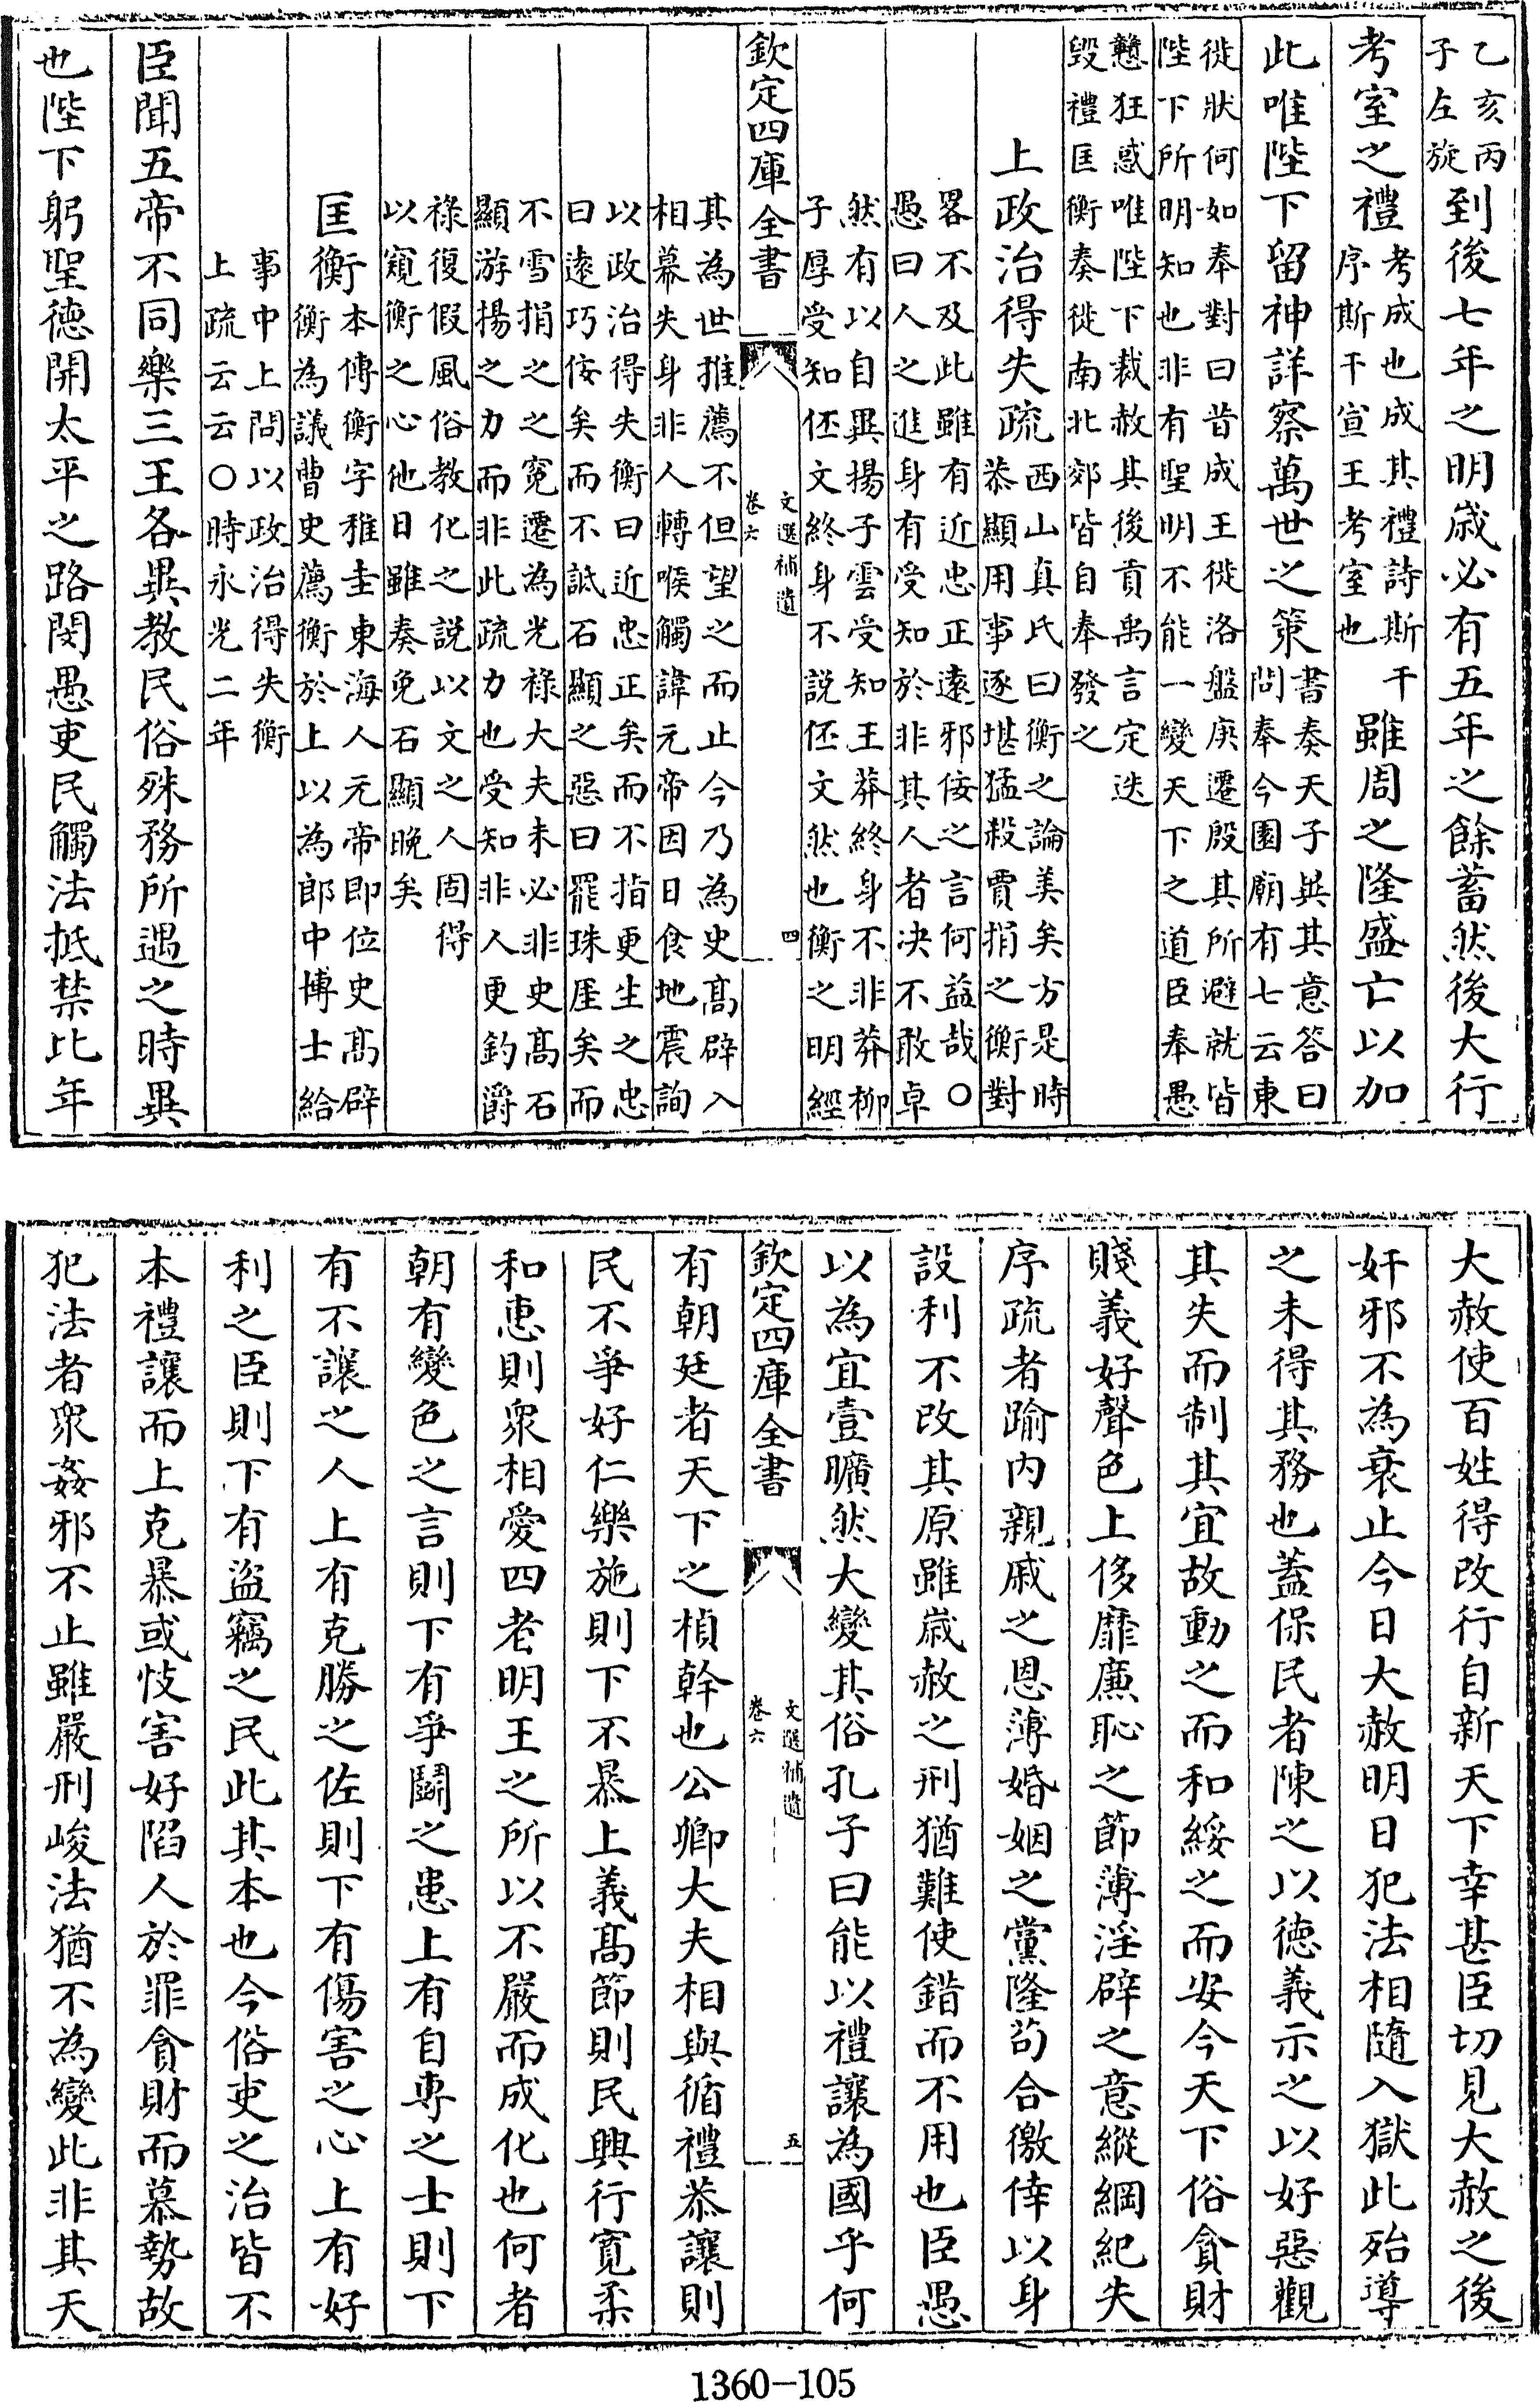 乙亥丙
子左旋
到後七年之明歳必有五年之餘蓄然後大行
考室之禮
考成也成其禮詩斯干
序斯干宣王考室也
雖周之隆盛亡以加
此唯陛下留神詳察萬世之策
書奏天子異其意答曰
問奉今園廟有七云東
徙狀何如奉對曰昔成王徙洛盤庚遷殷其所避就皆
陛下所明知也非有聖明不能一變天下之道臣奉愚
戇狂惑唯陛下裁赦其後貢禹言定迭
毀禮匡衡奏徙南北郊皆自奉發之
上政治得失疏
西山真氏曰衡之論美矣方是時
恭顯用事逐堪猛殺賈捐之衡對
畧不及此雖有近忠正遠邪佞之言何益哉〇
愚曰人之進身有受知於非其人者决不敢卓
然有以自異揚子雲受知王莽終身不非莽柳
子厚受知伾文終身不説伾文然也衡之明經
欽定四庫全書
文選補遺
卷六
四
其為世推薦不但望之而止今乃為史髙辟入
相幕失身非人轉喉觸諱元帝因日食地震詢
以政治得失衡曰近忠正矣而不指更生之忠
曰遠巧佞矣而不詆石顯之惡曰罷珠厓矣而
不雪捐之之寃遷為光祿大夫未必非史髙石
顯游揚之力而非此疏力也受知非人更釣爵
祿復假風俗教化之説以文之人固得
以窺衡之心他日雖奏免石顯晚矣
匡衡
本傳衡字稚圭東海人元帝即位史髙辟
衡為議曹史薦衡於上以為郎中博士給
事中上問以政治得失衡
上疏云云〇時永光二年
臣聞五帝不同樂三王各異教民俗殊務所遇之時異
也陛下躬聖德開太平之路閔愚吏民觸法抵禁比年
大赦使百姓得改行自新天下幸甚臣切見大赦之後
奸邪不為衰止今日大赦明日犯法相隨入獄此殆導
之未得其務也蓋保民者陳之以德義示之以好惡觀
其失而制其宜故動之而和綏之而安今天下俗貪財
賤義好聲色上侈靡廉恥之節薄淫辟之意縱綱紀失
序疏者踰内親戚之恩薄婚姻之黨隆茍合徼倖以身
設利不改其原雖歳赦之刑猶難使錯而不用也臣愚
以為宜壹曠然大變其俗孔子曰能以禮讓為國乎何
欽定四庫全書
文選補遺
卷六
五
有朝廷者天下之楨幹也公卿大夫相與循禮恭讓則
民不爭好仁樂施則下不暴上義髙節則民興行寛柔
和惠則衆相愛四者明王之所以不嚴而成化也何者
朝有變色之言則下有爭鬬之患上有自專之士則下
有不讓之人上有克勝之佐則下有傷害之心上有好
利之臣則下有盜竊之民此其本也今俗吏之治皆不
本禮讓而上克暴或忮害好陷人於罪貪財而慕勢故
犯法者衆姦邪不止雖嚴刑峻法猶不為變此非其天
1360-105